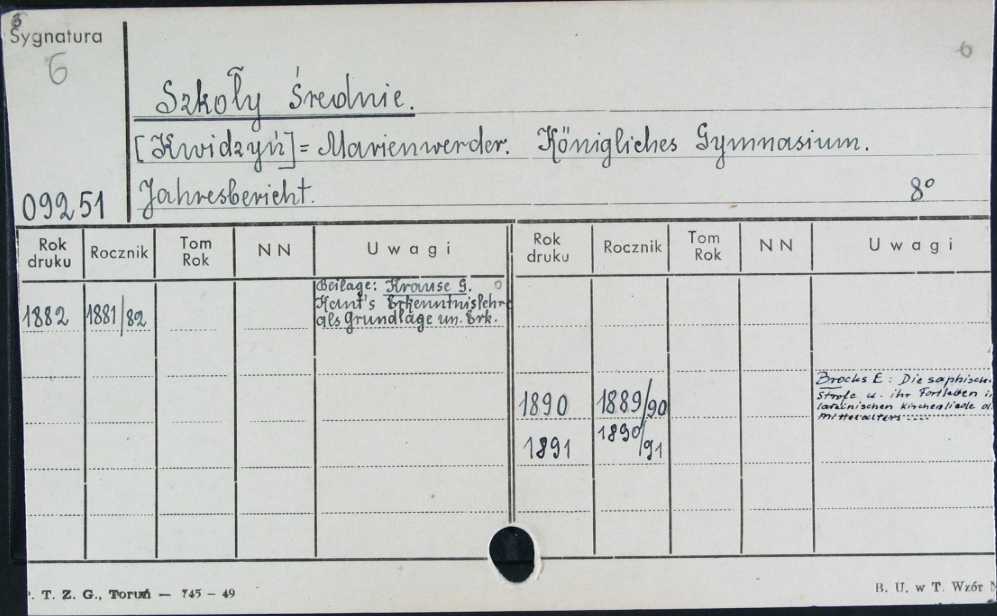 Sygnatura
6
6
Szkoły Średnie.
[Kwidzyń] = Marienwerder. Königliches Gymnasium.
09251 Jahresbericht. 8°
Rok druku Rocznik Tom Rok NN Uwagi Rok druku Rocznik Tom Rok NN Uwagi
1882 1881/82
Beilage: Krause G.
Kant's Erkenntnislehre
als Grundlage un. Erk.
1890 1889/90
1891 1890/91
Brocks E: Die saphisch
Strofe u. ihr Fortleben i
lateinischen Kirchenliede
Mittelalters
T. Z. G., Toruń — 745 – 49
B. U. w T. Wzór N